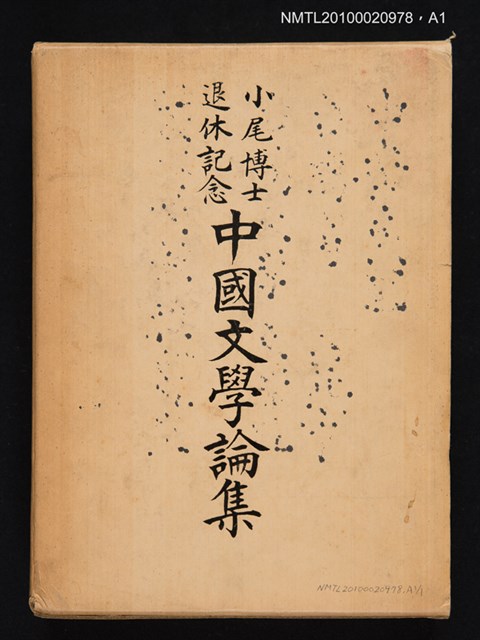 NMTL20100020978，A1
小尾博士
退休記念
中國文學論集
NMTL20100020978.A1/1